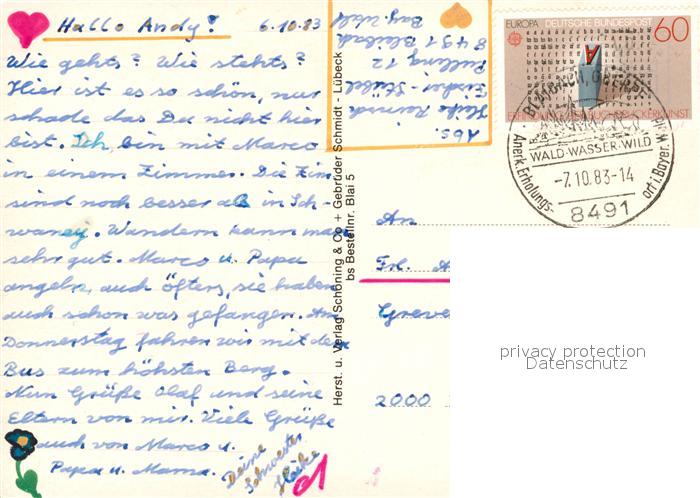 Hallo Andy! 6.10.83
Wie gehts? Wie stehts?
Hier ist es so schön, nur
schade das Du nicht hier
bist. Ich bin mit Marco
in einem Zimmer. Die Zim
sind noch besser als in Sch-
waney. Wandern kann man
sehr gut. Marco u. Papa
angeln, auch öfters, sie haben
auch schon was gefangen. Am
Donnerstag fahren wir mit dem
Bus zum höhsten Berg.
Nun Grüße Olaf und seine
Eltern von mir. Viele Grüße
auch von Marco u.
Papa u. Mama.
Deine
Schwester
Heike
Abs.
Heike
Pulling 12
8491 Blaibach
Bay. Wald
Herst. u. Verlag Schöning & Co + Gebrüder Schmidt - Lübeck
bs Bestellnr. Blai 5
EUROPA DEUTSCHE BUNDESPOST 60
WALD-WASSER-WILD
-7.10.83-14
Anerk. Erholungs-
ort i. Bayer. W
8491
An
Frl. A
Greve
2000
privacy protection
Datenschutz